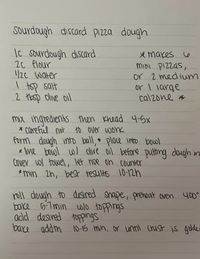 sourdough discard pizza dough
1c sourdough discard
2c flour
1/2c water
1 tsp salt
2 tbsp olive oil
* makes 6
mini pizzas,
or 2 medium
or 1 large
calzone *
mix ingredients then knead 4-5x
* careful not to over work
form dough into ball, + place into bowl
* line bowl w/ olive oil before putting dough in
cover w/ towel, let rise on counter
* min 2h, best results 10-12h
roll dough to desired shape, preheat oven 400°
bake 6-7 min w/o toppings
add desired toppings
bake addtn 10-15 min, or until crust is golde